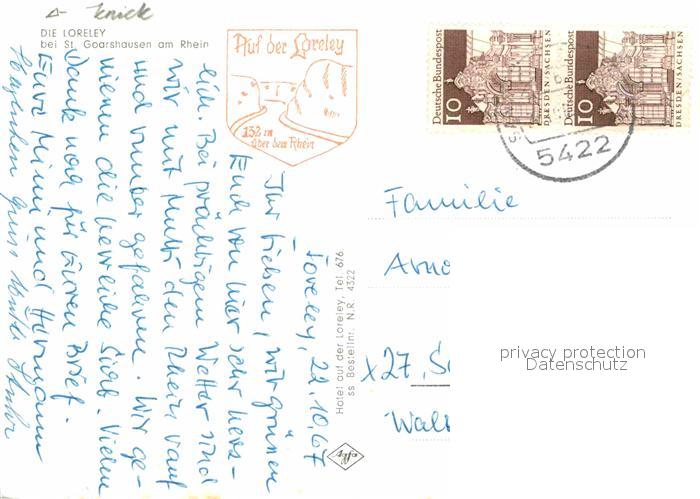 Knick
DIE LORELEY
bei St. Goarshausen am Rhein
Auf der Loreley
132 m
über dem Rhein
Deutsche Bundespost
10
DRESDEN/SACHSEN
Deutsche Bundespost
10
DRESDEN/SACHSEN
5422
Loreley, 22.10.67
Ihr Lieben, wir grüssen
Euch von hier sehr herz-
lich. Bei prächtigem Wetter sind
wir mit Mutti den Rhein rauf
und runter gefahren. Wir ge-
niessen die herrliche Sicht. Vielen
Dank noch für Euren Brief.
Eure Mimi und Hermann
Familie
Arno
x27, S
Wal
privacy protection
Datenschutz
Hotel auf der Loreley, Tel. 676
ss Bestellnr. N.R. 4322
Agfa